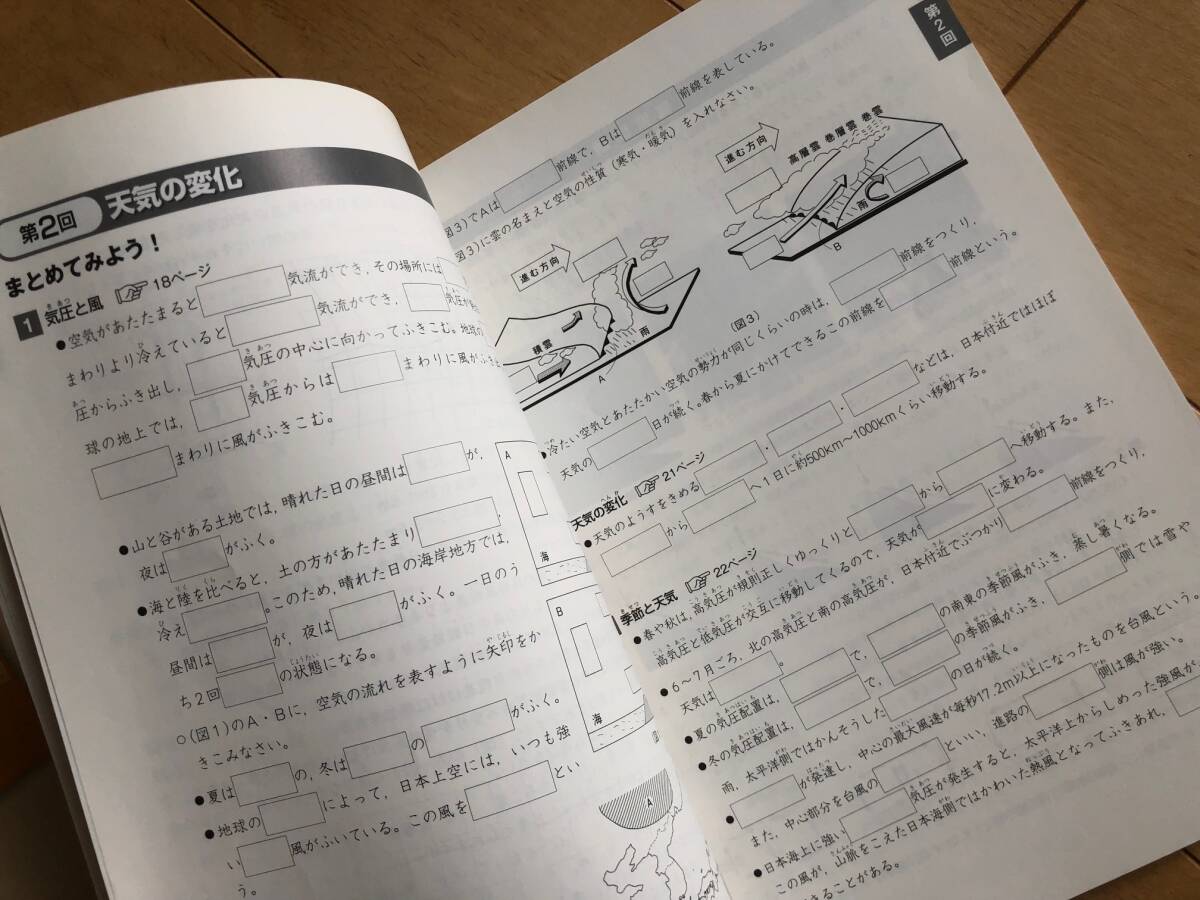 第2回 天気の変化
まとめてみよう！
1 気圧と風 18ページ
●空気があたたまると 気流ができ，その場所には
まわりより冷えていると 気流ができ， 気圧が
圧からふき出し， 気圧の中心に向かってふきこむ。地球の
球の地上では， 気圧からは まわりに風がふき
まわりに風がふきこむ。
●山と谷がある土地では，晴れた日の昼間は が，
夜は がふく。
●海と陸を比べると，土の方があたたまり ，
冷え 。このため，晴れた日の海岸地方では，
昼間は が，夜は がふく。一日のう
ち2回 の状態になる。
○(図1)のA・Bに，空気の流れを表すように矢印をか
きこみなさい。
●夏は の，冬は の がふく。
●地球の によって，日本上空には，いつも強
い 風がふいている。この風を とい
う。
A
海
B
海
A
第2回
図3)でAは 前線で，Bは 前線を表している。
図3)に雲の名まえと空気の性質（寒気・暖気）を入れなさい。
進む方向
積雲
雨
A
進む方向
高層雲 巻層雲 巻雲
雨
B
(図3)
●冷たい空気とあたたかい空気の勢力が同じくらいの時は， 前線をつくり，
天気の 日が続く。春から夏にかけてできるこの前線を 前線という。
天気の変化 21ページ
●天気のようすをきめる ・ ・ などは，日本付近ではほぼ
から へ1日に約500km～1000kmくらい移動する。
季節と天気 22ページ
●春や秋は，高気圧が規則正しくゆっくりと から へ移動する。また，
高気圧と低気圧が交互に移動してくるので，天気が に変わる。
●6～7月ごろ，北の高気圧と南の高気圧が，日本付近でぶつかり 前線をつくり，
天気は 。
●夏の気圧配置は， で， の南東の季節風がふき，蒸し暑くなる。
●冬の気圧配置は， で， の季節風がふき， 側では雪や
雨，太平洋側ではかんそうした の日が続く。
● が発達し，中心の最大風速が毎秒17.2m以上になったものを台風という。
また，中心部分を台風の といい，進路の 側は風が強い。
●日本海上に強い 気圧が発生すると，太平洋上からしめった強風が，
この風が，山脈をこえた日本海側ではかわいた熱風となってふきあれ，
きることがある。